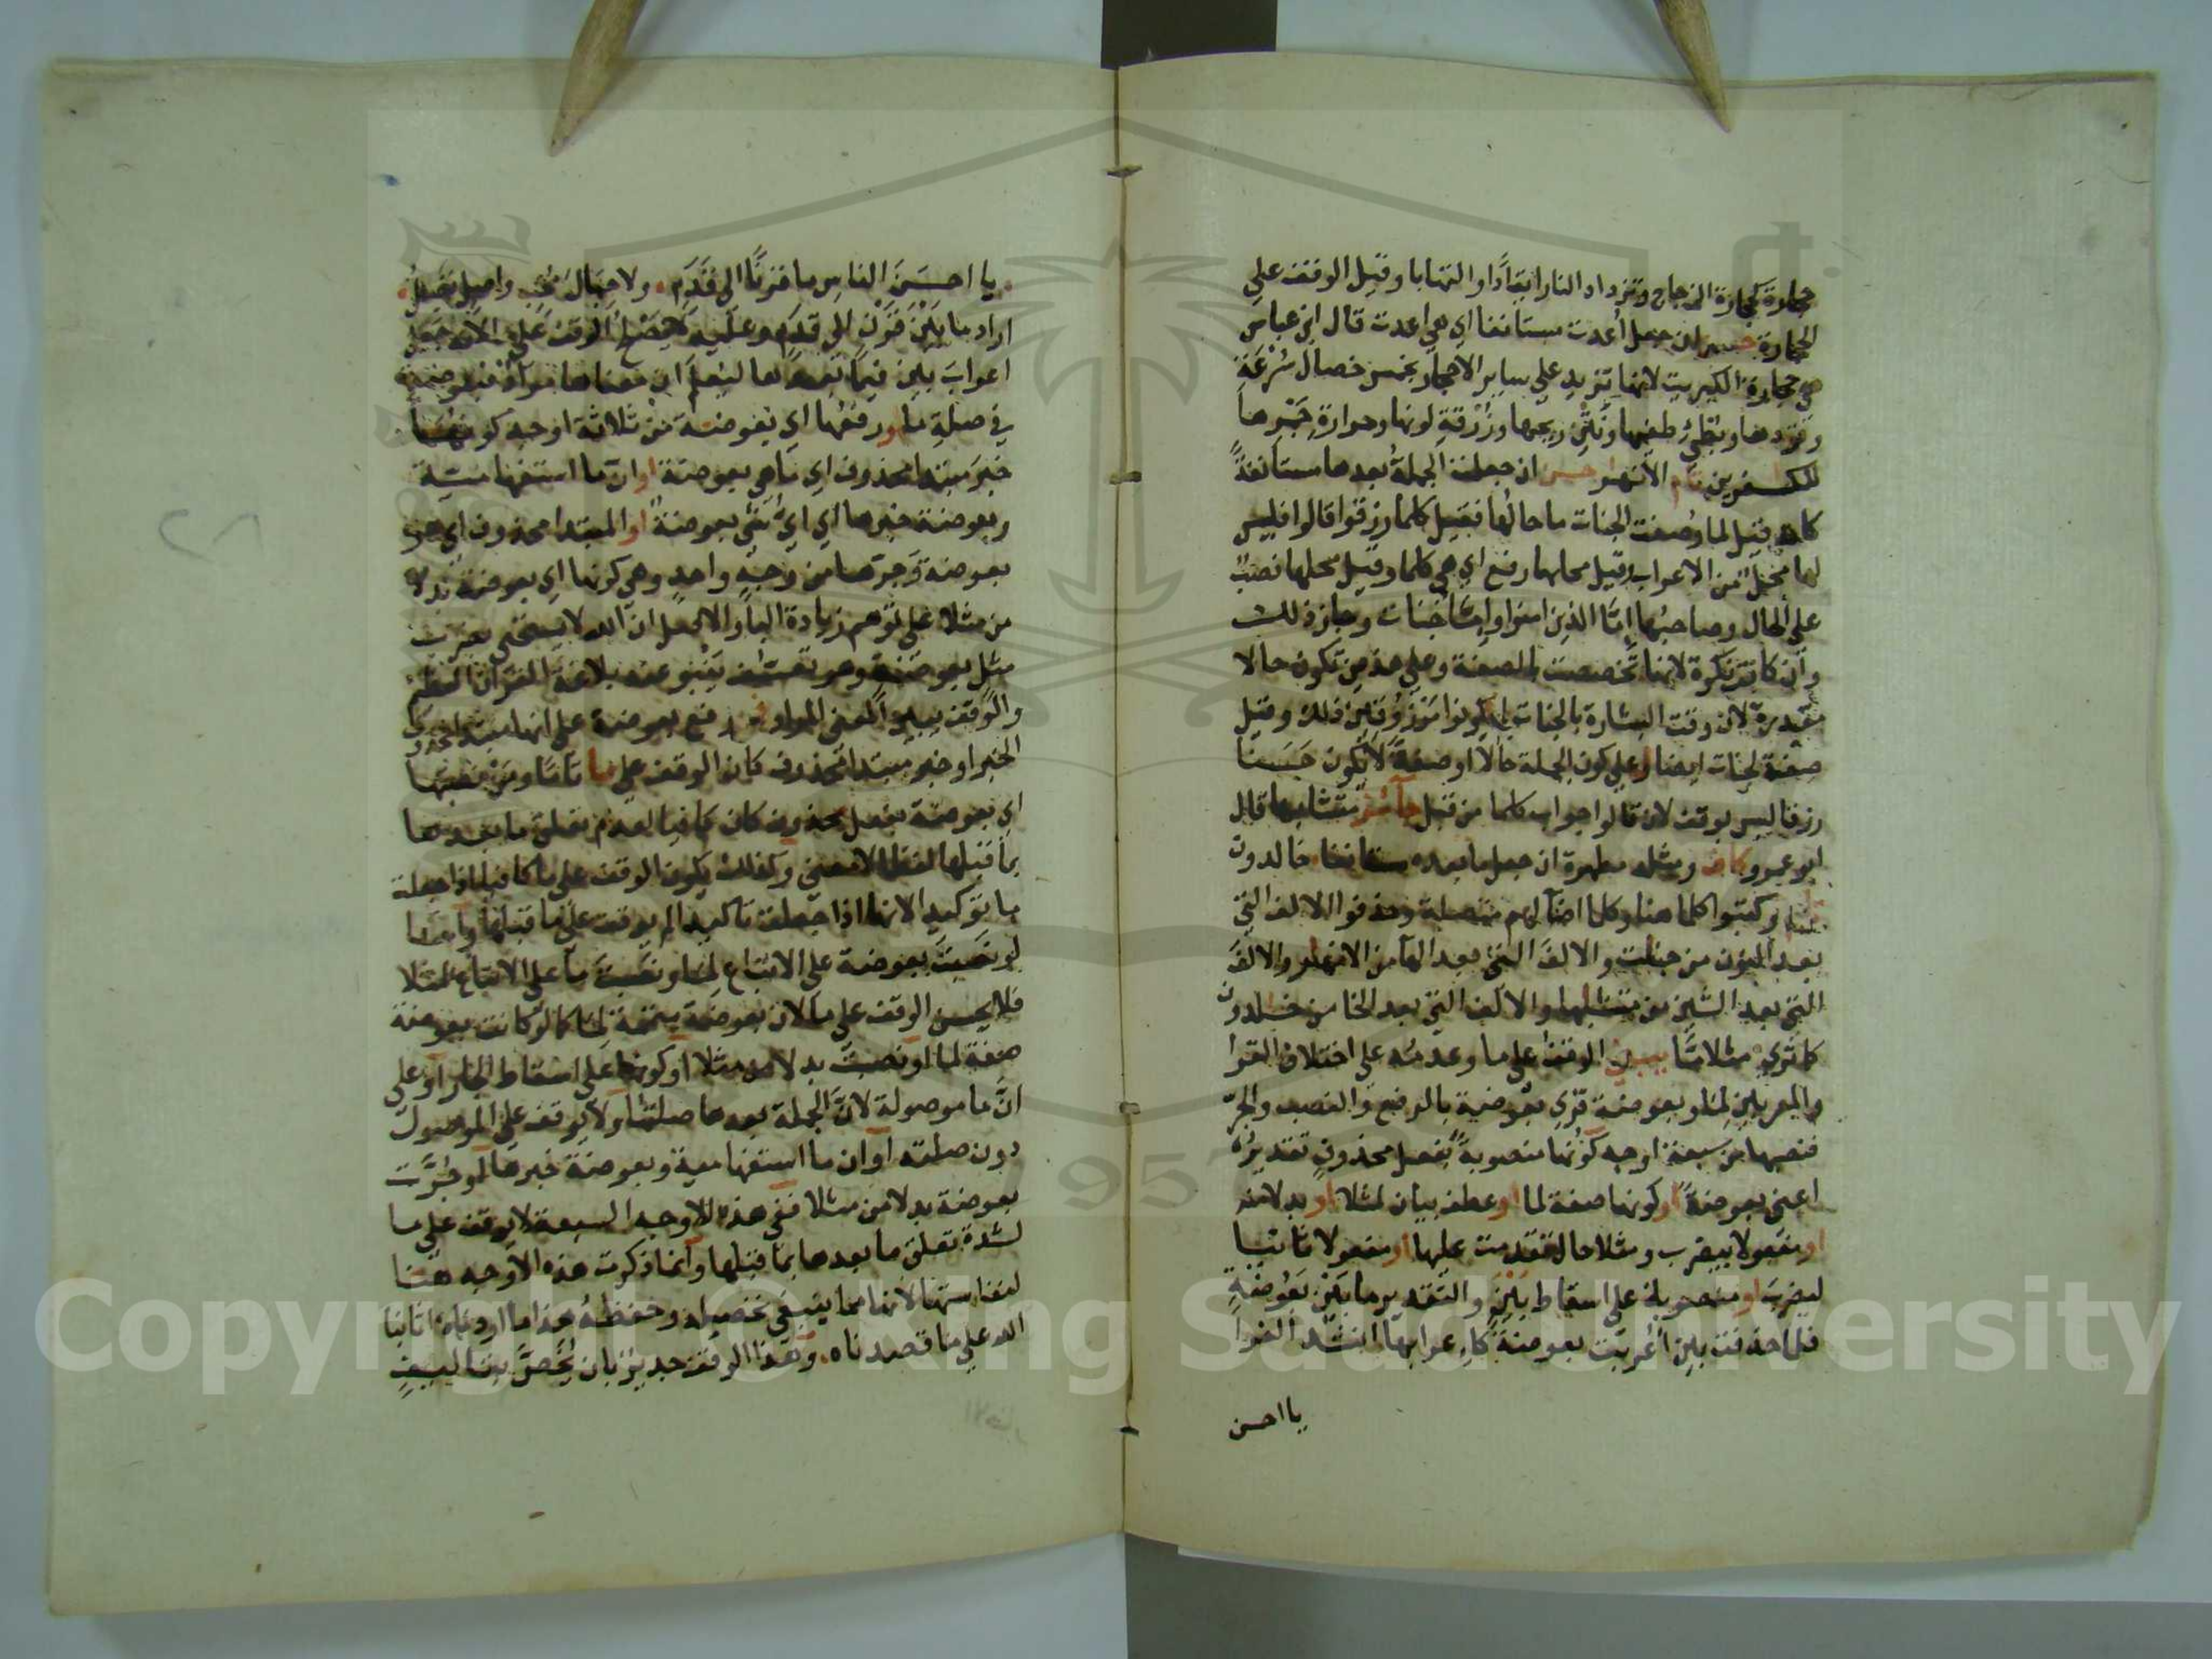 حجارة كحجارة الزجاج وتزداد النار ايقادًا والتهابا وقيل الوقف على
الحجارة حسن ان جعل أعدت مستانفا اي هي اعدت قال ابن عباس
هي حجارة الكبريت لانها تزيد على ساير الاحجار بخمس خصال سرعة
وقودها وبطئ طفيها ونتن ريحها وزرقة لونها وحرارة جمرها
للكفرين تام الانهر حسن ان جعلت الجملة بعدها مستانفة
كانه قيل لما وصفت الجنات ما حالها فقيل كلما رزقوا قالوا فليس
لها محل من الاعراب وقيل محلها رفع اي هي كلما وقيل محلها نصب
على الحال وصاحبها إمّا الذين امنوا وإمّا جنات وجاز ذلك
وان كانت نكرة لانها تخصصت بالصفة وعلى هذين تكون حالا
مقدرة لان وقت البشارة بالجنات لم يكونوا مرزوقين ذلك وقيل
صفة لجنات ايضا وعلى كون الجملة حالا او صفة لا يكون حسنا
رزقا ليس بوقف لان قالوا جواب كلما من قبل جائز متشابها قال
ابو عمرو كاف ومثله مطهرة ان جعل ما بعده مستانفا خالدون
تام وكتبوا كلما هنا وكلما اضآ لهم متصلة وحذفوا الالف التي
بعد النون من جنات والالف التي بعد الهآ من الانهار والالف
التي بعد الشين من متشابها والالف التي بعد الخا من خلدون
كما ترى مثلا مّا يبنى الوقف على ما وعدمه على اختلاف القرا
والمعربين لمثلا وبعوضة قرى بعوضة بالرفع والنصب والجرّ
فنصبها من سبعة اوجه كونها منصوبة بفعل محذوف تقديره
اعنى بعوضة او كونها صفة لما او عطف بيان لمثلا او بدلا منه
او مفعولا بيضرب ومثلا حال تقدمت عليها او مفعولا ثانيا
ليضرب او منصوبة على اسقاط بين والتقدير ما بين بعوضة
فلما حذفت بين اعربت بعوضة كاعرابها انشد الفرا
يا احسن
يا احسن الناس ما قرنًا الى قدم ولا حبال محب واصل تصل
اراد ما بين قرن الى قدم وعليه لا يصلح الوقف على ما لانه جعل
اعراب بين فيما بعدها ليعلم ان معناها مراد فبعوضة
في صلة ما ورفعها اي بعوضة من ثلاثة اوجه كونها
خبر مبتدا محذوف اي ما هي بعوضة او ان ما استفهامية
وبعوضة خبرها اي اي شئ بعوضة او المبتدا محذوف اي هو
بعوضة وجرها من وجه واحد وهي كونها اي بعوضة بدلا
من مثلا على توهم زيادة البا والاصل ان الله لا يستحى بضرب
مثل بعوضة وهو تعسف ينبو عنه بلاغة القران العظيم
والوقف يبين المعنى المراد فمن رفع بعوضة على انها مبتدا محذوف
الخبر او خبر مبتدا محذوف كان الوقف على ما تاما ومن نصبها
اي بعوضة بفعل محذوف كان كافيا لعدم تعلق ما بعدها
بما قبلها لفظا لا معنى وكذلك يكون الوقف على ما كافيا اذا جعلت
ما توكيدا لانها اذا جعلت تاكيدا لم يوقف على ما قبلها واما
لو نصبت بعوضة على الاتباع لما ونصبت ما على الاتباع لمثلا
فلا يحسن الوقف على ما لان بعوضة متممة لما كما لو كانت بعوضة
صفة لما او نصبت بدلا من مثلا او كونها على اسقاط الجار او على
انّ ما موصولة لانّ الجملة بعدها صلتها ولا يوقف على الموصول
دون صلته او ان ما استفهامية وبعوضة خبرها او جُرّت
بعوضة بدلا من مثلا ففي هذه الاوجه السبعة لا يوقف على ما
لشدة تعلق ما بعدها بما قبلها وانما ذكرت هذه الاوجه هنا
لنفاستها لانها مما ينبغى تحصيله وحفظه هذا ما اردناه اثابنا
الله على ما قصدناه وهذا الوقف جدير بان يُخَصّ بتاليفٍ